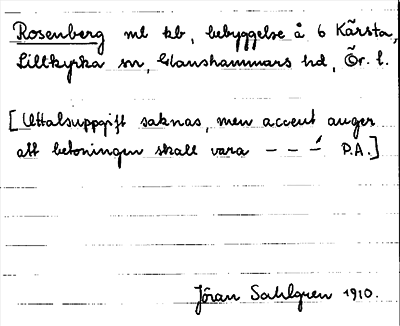 Rosenberg ml kb, bebyggelse å 6 Kårsta,
Lillkyrka sn, Glanshammars hd, Ör. l.
[Uttalsuppgift saknas, men accent anger
att betoningen skall vara – – –́ P.A.]
Jöran Sahlgren 1910.